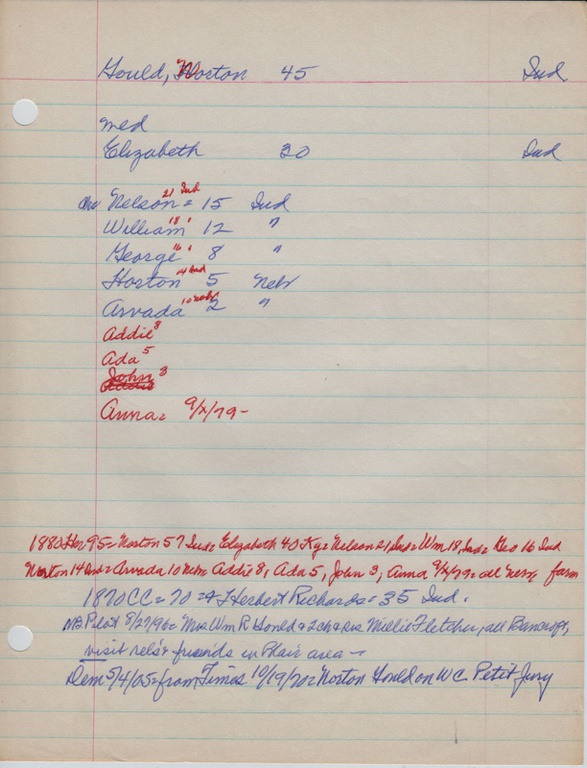 Gould, Norton 45 Ind
med
Elizabeth 30 Ind
chr Nelson = 15 Ind 21 Ind
William 12 " 18
George 8 " 16
Horton 5 Nebr 14 Ind
Arvada 2 " 10 Nebr
Addie 8
Ada 5
John 3
Anna = 9/x/79-
1880 Her 95 = Norton 57 Ind = Elizabeth 40 Ky = Nelson 21, Ind = Wm 18, Ind = Geo 16 Ind
Norton 14 Ind = Arvada 10 Nebr = Addie 8, Ada 5, John 3, Anna 9/x/79 = all Nebr farm
1870 CC = 70 = Herbert Richards = 35 Ind.
Pilot 5/27/96 = Mrs Wm R Gould & 2 ch & Mrs Millie Fletcher, all Bancroft,
visit rels & friends in Blair area -
Dem 5/4/05 = from Times 10/19/70 = Norton Gould on WC Petit Jury